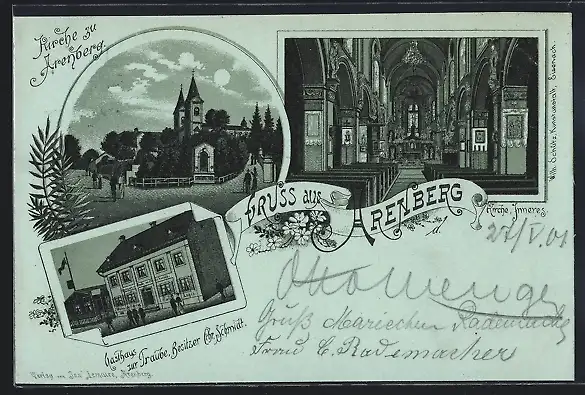 Kirche zu
Arenberg.
Gruss aus Arenberg
Kirche, Inneres.
Wilh. Schütz, Kunstanstalt, Eisenach.
d. 27/V.01
Otto Menge
Gruß Mariechen Rademacher
C. Rademacher
Gasthaus
zur Traube. Besitzer Chr. Schmidt.
Verlag von Arenberg.